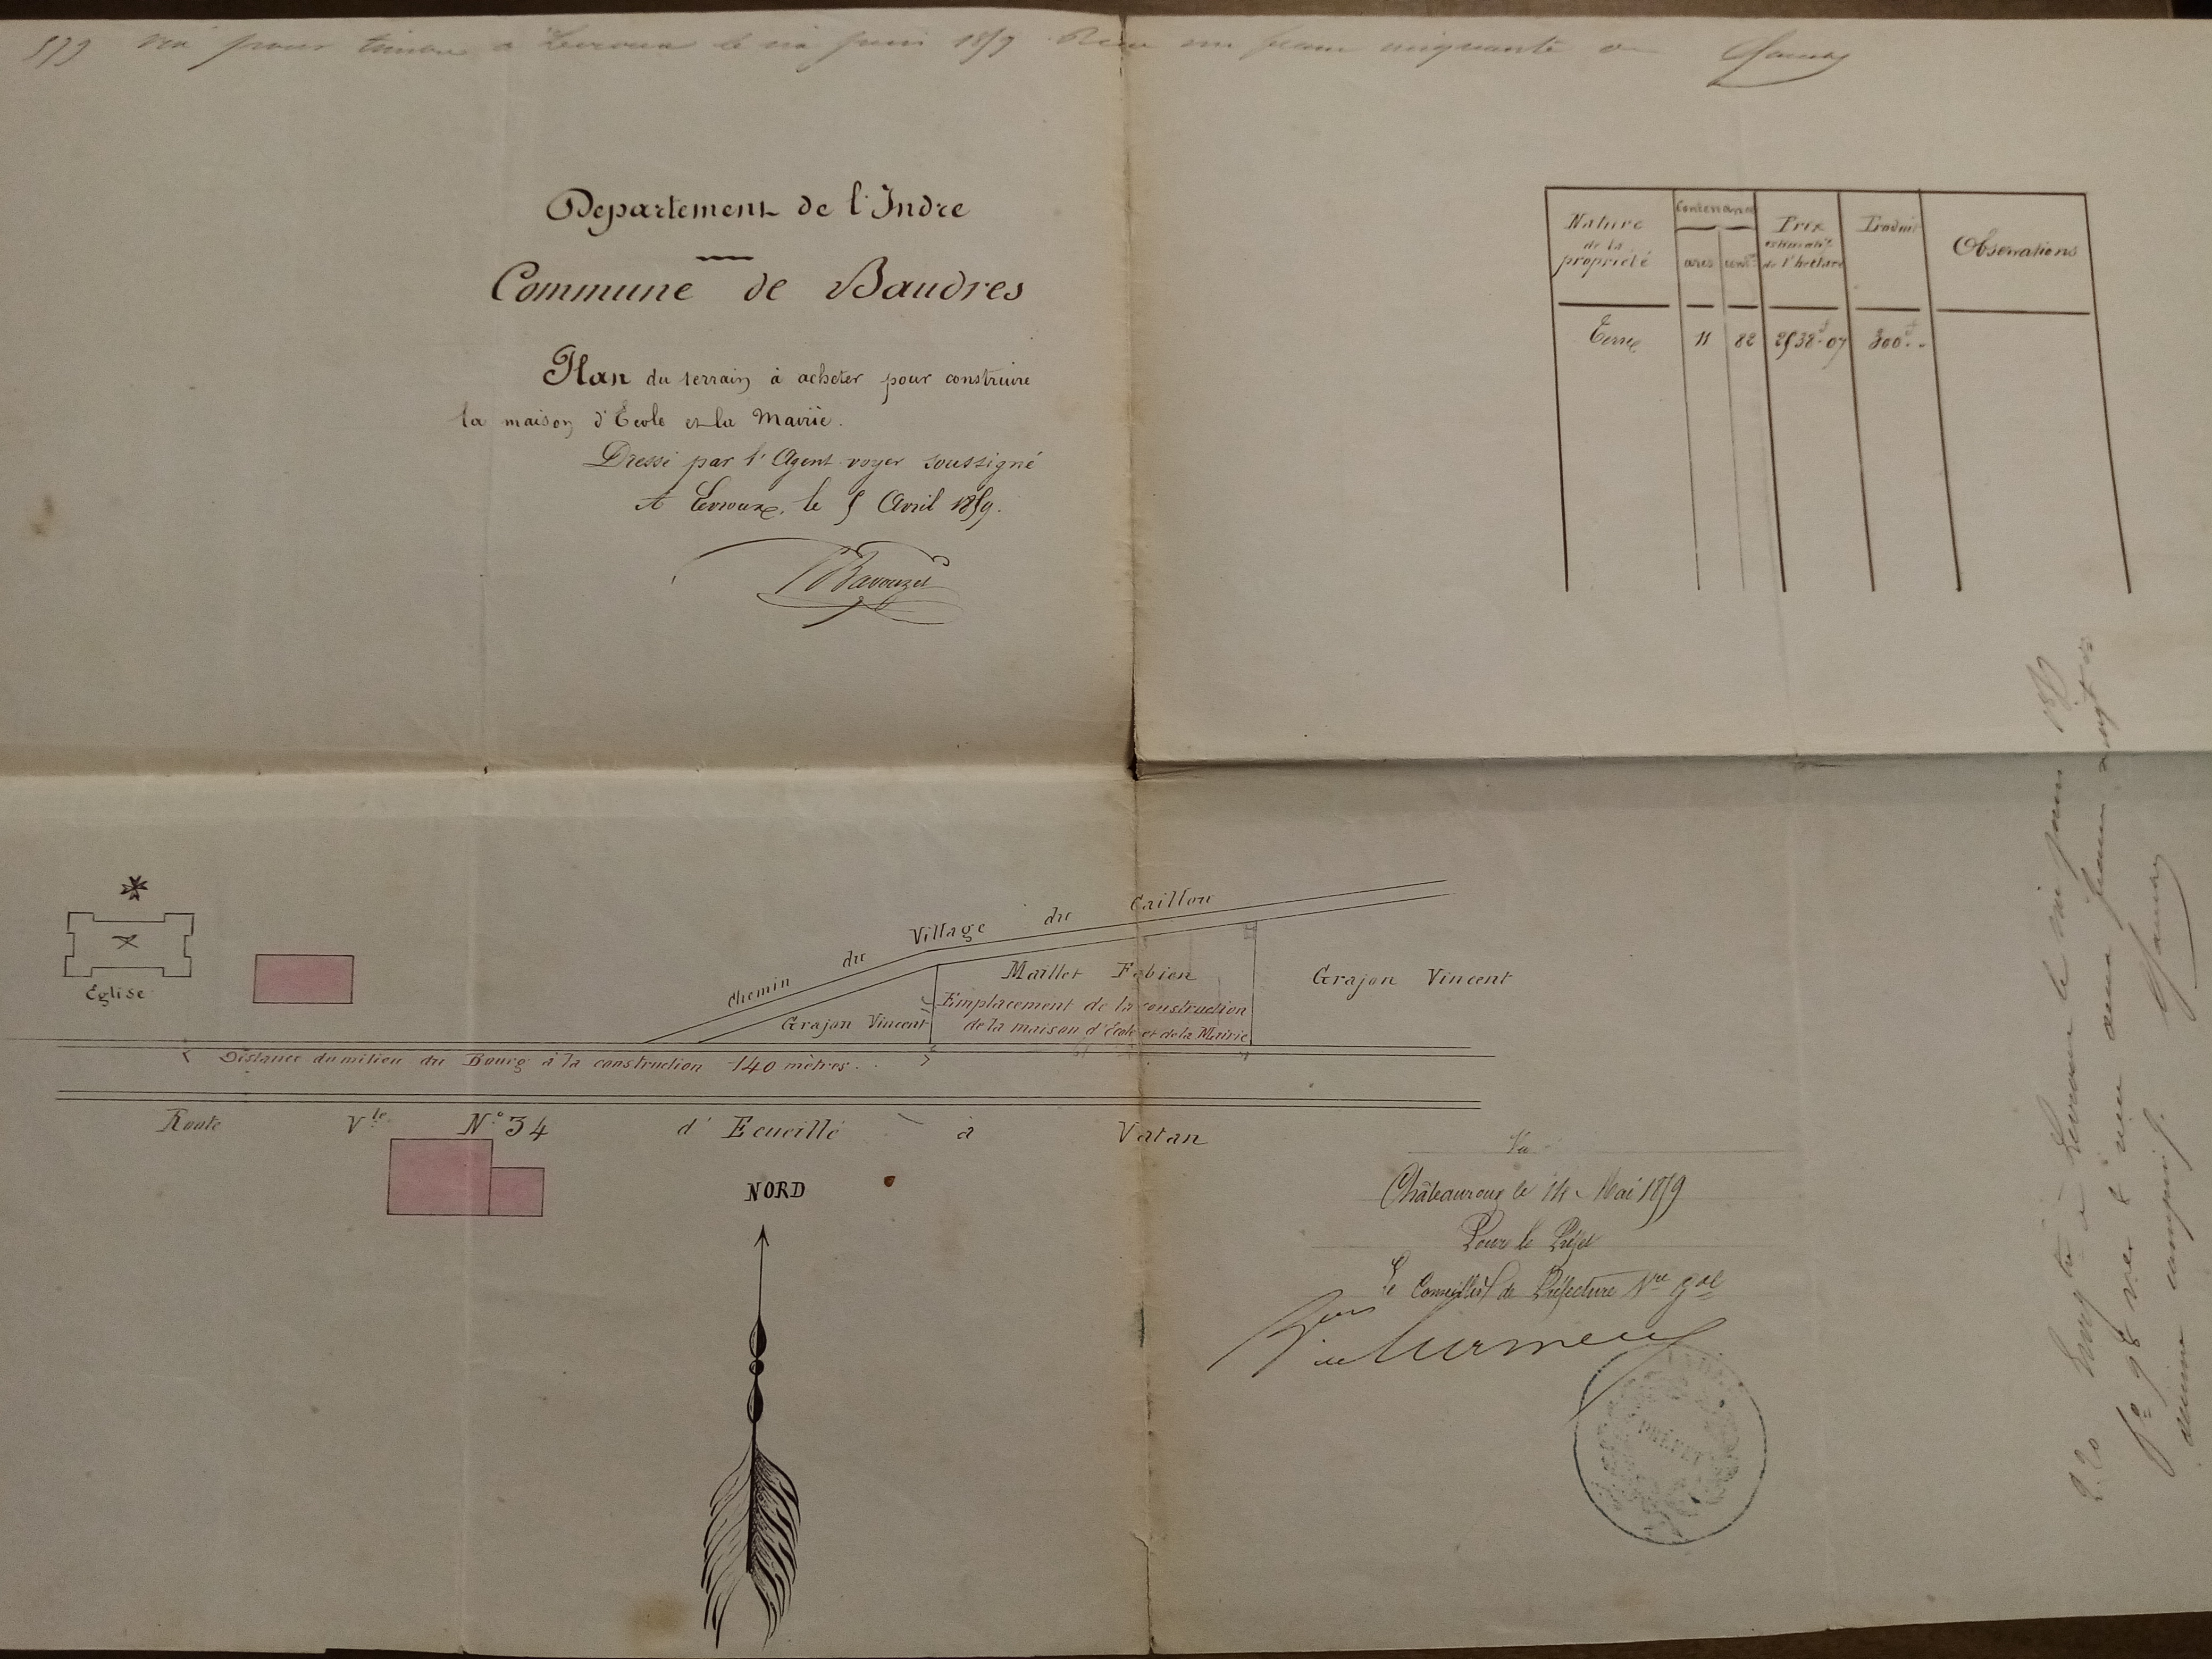 579 Vu pour timbre à Levroux le six juin 1859 Reçu un franc cinquante
Departement de l'Indre
Commune de Baudres
Plan du terrain à acheter pour construire
la maison d'Ecole et la Mairie.
Dressé par l'Agent voyer soussigné
A Levroux, le 5 Avril 1859.
Bavouzet
Nature de la propriété | Contenance ares cent. | Prix estimatif de l'hectare | Produit | Observations
Terre | 11 | 82 | 2538f.07 | 300f.„
Chemin du Village du Caillou
Eglise
Maillet Fabien
Grajon Vincent
Emplacement de la construction
de la maison d'école et de la Mairie
Grajon Vincent
Distance du milieu du Bourg à la construction 140 mètres.
Route Vle N° 34 d'Ecueillé à Vatan
NORD
Vu
Châteauroux le 14 Mai 1859
Pour le Préfet
Le Conseiller de Préfecture Sre Gal
PRÉFET
à Levroux le six juin 1859
deux francs vingt
décime compris.